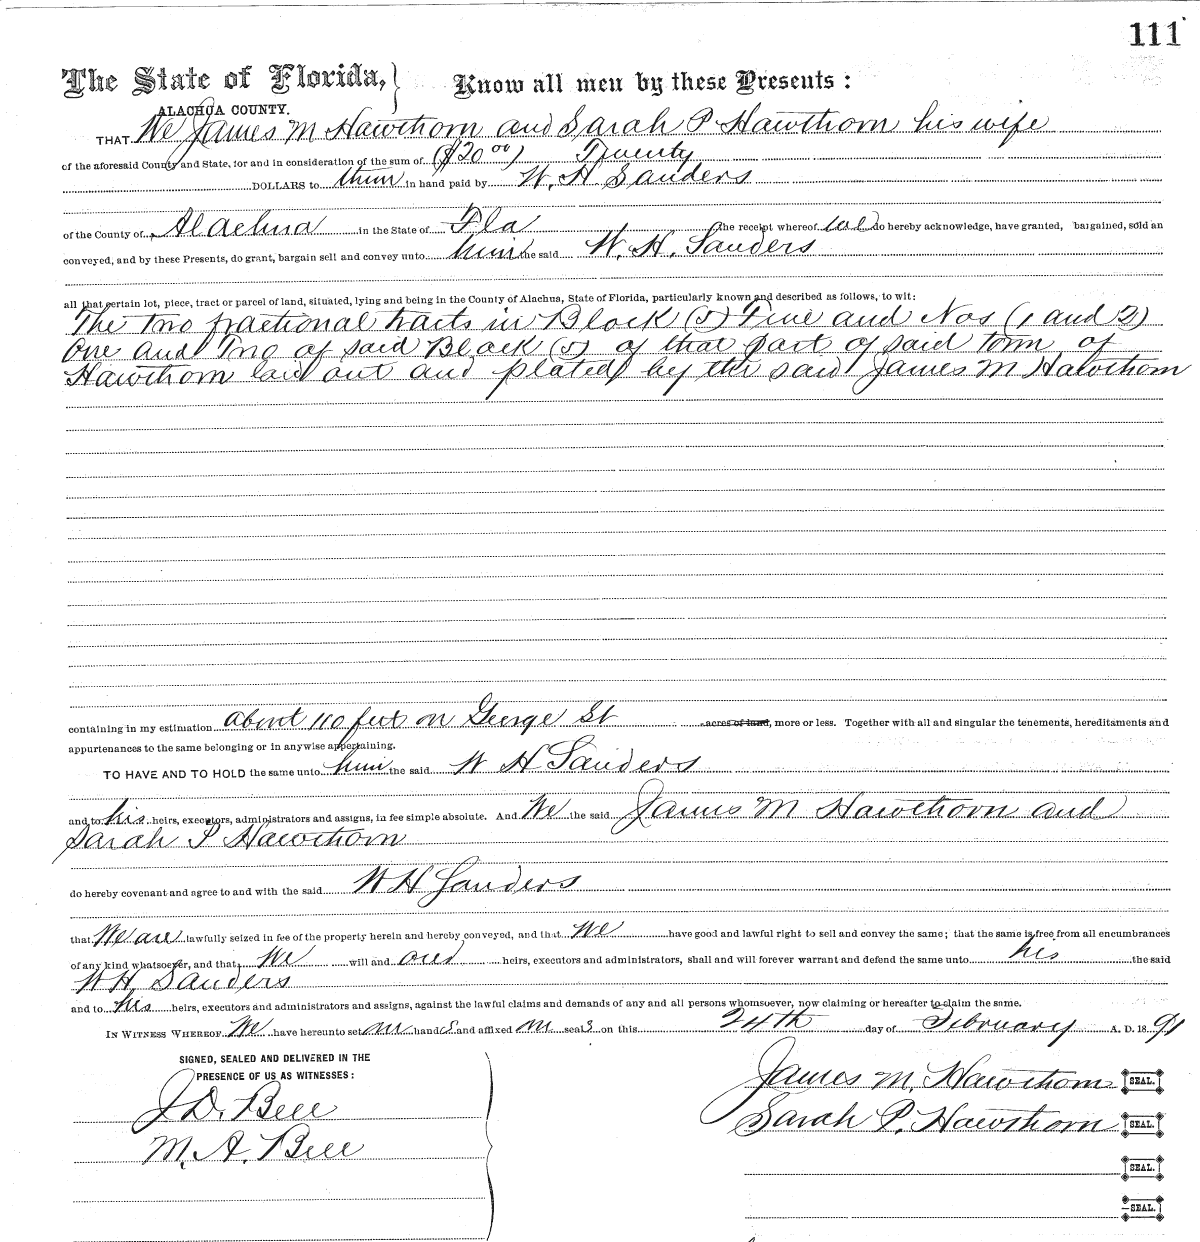 111
The State of Florida, } Know all men by these Presents :
ALACHUA COUNTY.
THAT We James M Hawthorn and Sarah P Hawthorn his wife
of the aforesaid County and State, for and in consideration of the sum of ($20 00) Twenty
DOLLARS to them in hand paid by W. H Sanders
of the County of Alachua in the State of Fla the receipt whereof we do hereby acknowledge, have granted, bargained, sold an
conveyed, and by these Presents, do grant, bargain sell and convey unto him the said W. H. Sanders
all that certain lot, piece, tract or parcel of land, situated, lying and being in the County of Alachua, State of Florida, particularly known and described as follows, to wit:
The Two fractional tracts in Block (5) Five and Nos (1 and 2)
One and Two of said Block (5) of that part of said town of
Hawthorn laid out and plated by the said James M Hawthorn
containing in my estimation about 110 feet on George St acres of land, more or less. Together with all and singular the tenements, hereditaments and
appurtenances to the same belonging or in anywise appertaining.
TO HAVE AND TO HOLD the same unto him the said W H Sanders
and to his heirs, executors, administrators and assigns, in fee simple absolute. And We the said James M Hawthorn and
Sarah P Hawthorn
do hereby covenant and agree to and with the said W H Sanders
that We are lawfully seized in fee of the property herein and hereby conveyed, and that We have good and lawful right to sell and convey the same; that the same is free from all encumbrances
of any kind whatsoever, and that We will and our heirs, executors and administrators, shall and will forever warrant and defend the same unto his the said
W H. Sanders
and to his heirs, executors and administrators and assigns, against the lawful claims and demands of any and all persons whomsoever, now claiming or hereafter to claim the same.
IN WITNESS WHEREOF We have hereunto set hand s and affixed seal s on this 24th day of February A. D. 18 91
SIGNED, SEALED AND DELIVERED IN THE
PRESENCE OF US AS WITNESSES :
James M. Hawthorn SEAL.
J D. Bell
Sarah P. Hawthorn SEAL.
M. A. Bell
SEAL.
SEAL.